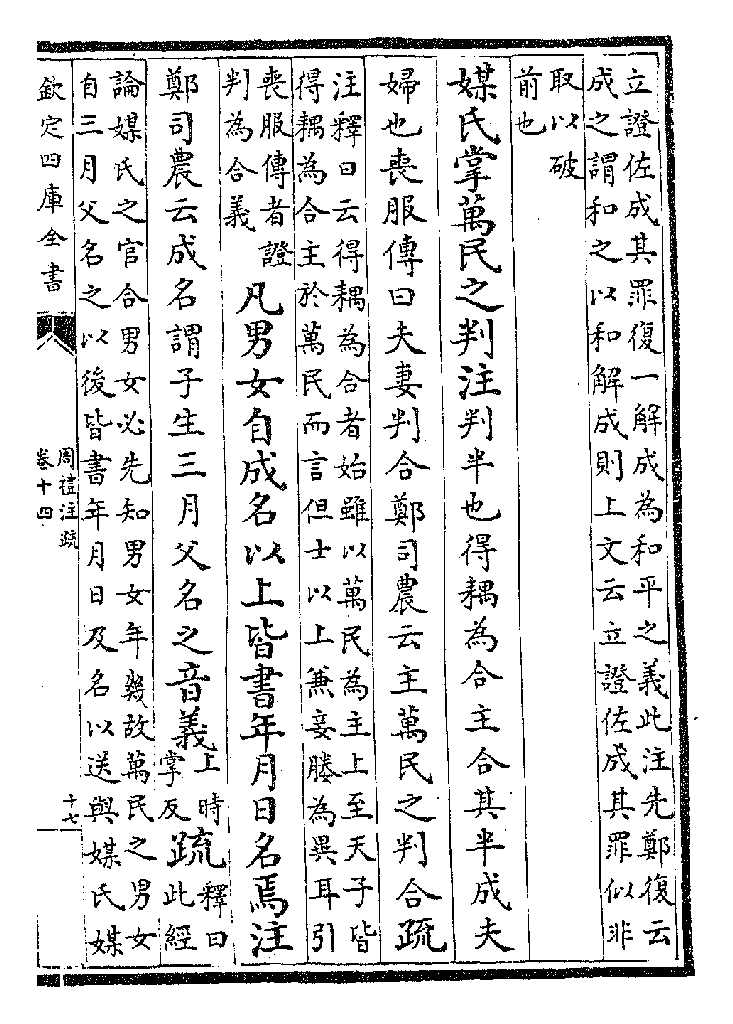 立證佐成其罪復一解成為和平之義此注先鄭復云
成之謂和之以和解成則上文云立證佐成其罪似非
取以破
前也
媒氏掌萬民之判注判半也得耦為合主合其半成夫
婦也喪服傳曰夫妻判合鄭司農云主萬民之判合疏
注釋曰云得耦為合者始雖以萬民為主上至天子皆
得耦為合主於萬民而言但士以上兼妾媵為異耳引
喪服傳者證
判為合義
凡男女自成名以上皆書年月日名焉注
鄭司農云成名謂子生三月父名之音義
上時
掌反
疏
釋曰
此經
論媒氏之官合男女必先知男女年幾故萬民之男女
自三月父名之以後皆書年月日及名以送與媒氏媒
欽定四庫全書
周禮注疏
卷十四
十七